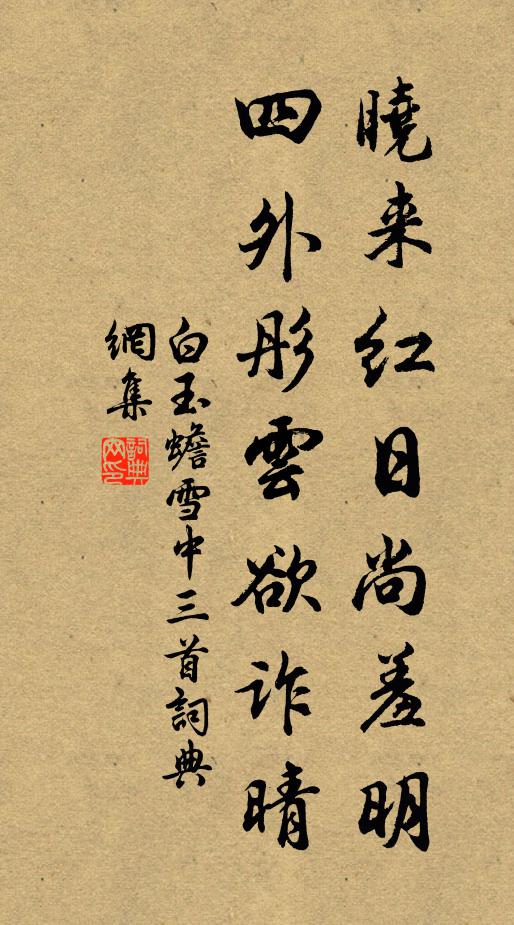 曉来紅日尚羞明
四外彤雲欲詐晴
白玉蟾雪中三首詞典
網集
詞典網印